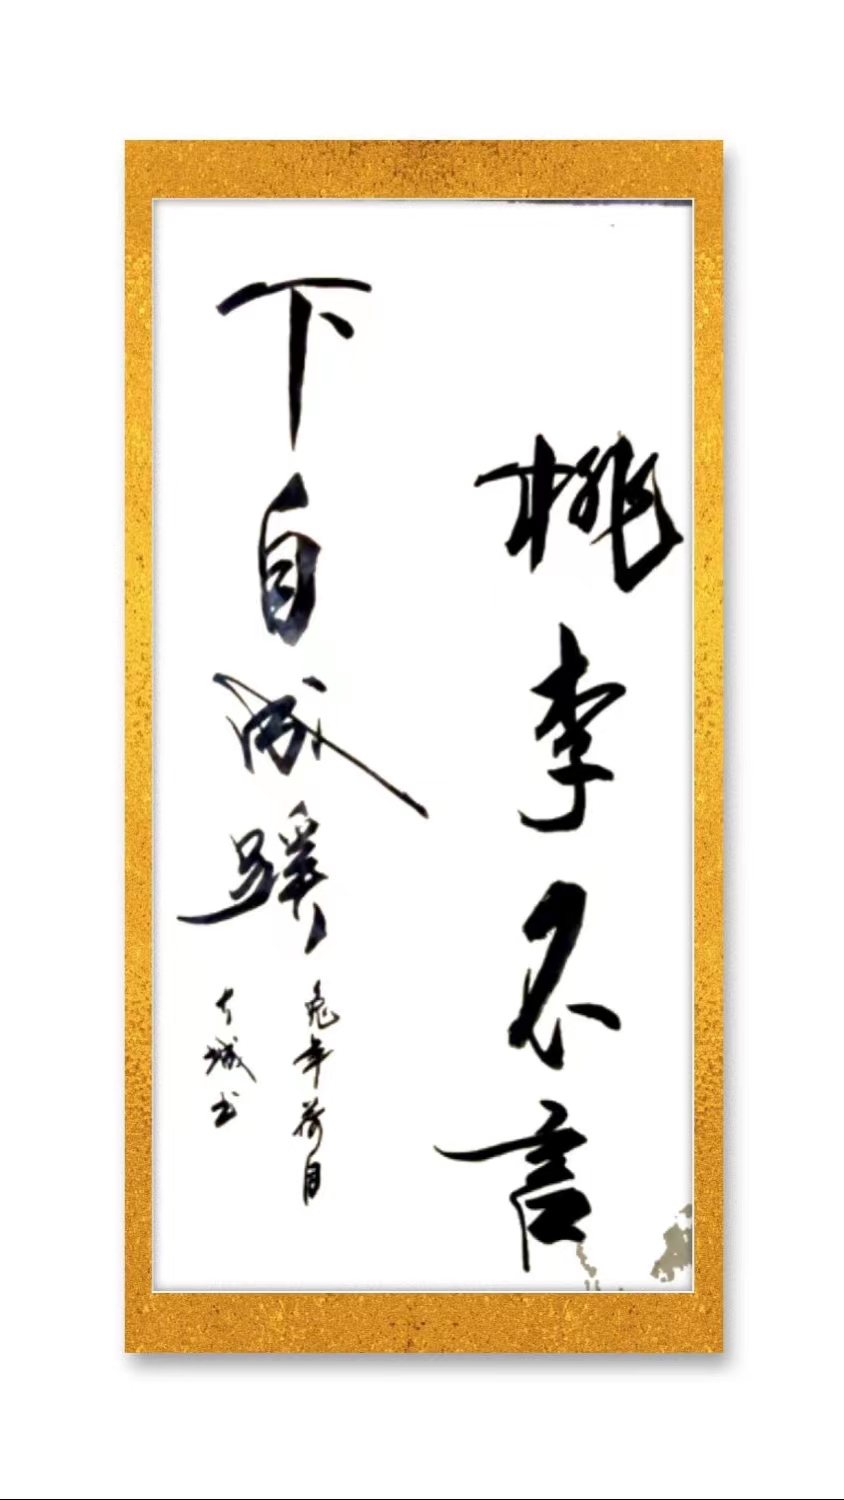 桃李不言
下自成蹊
兔年荷月
大城书